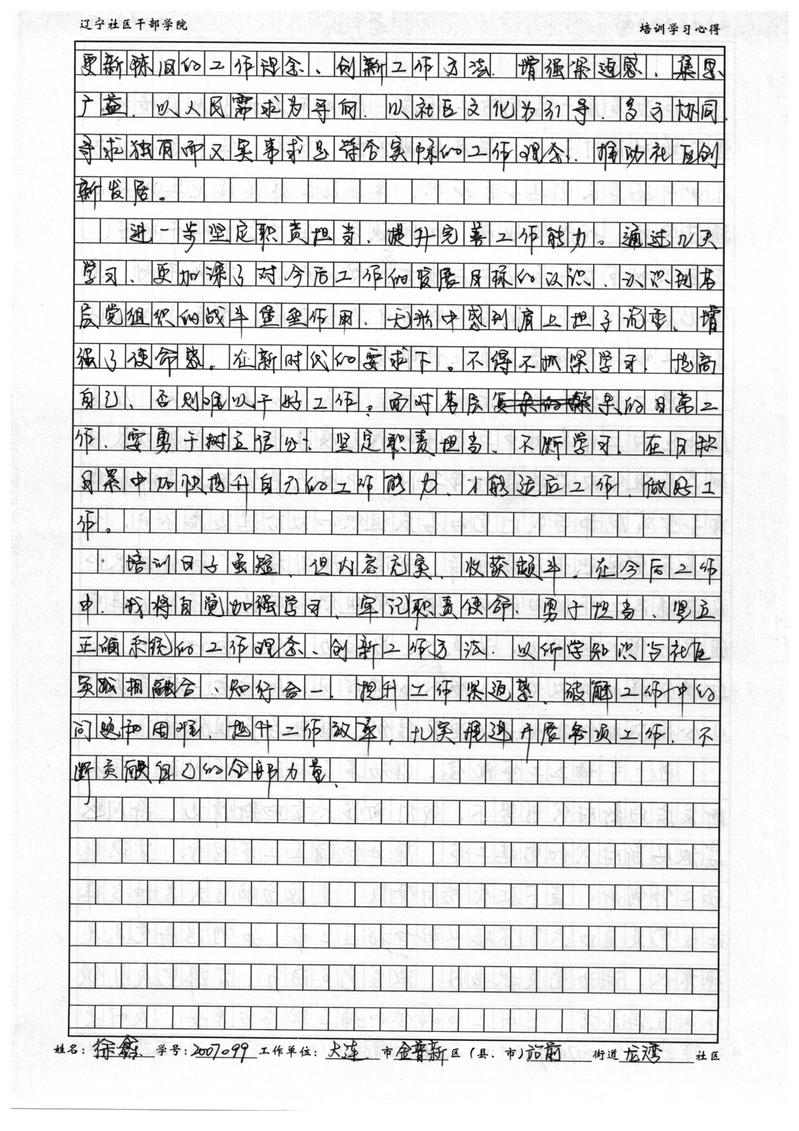 辽宁社区干部学院 培训学习心得
更新陈旧的工作理念、创新工作方法、增强紧迫感、集思
广益、以人民需求为导向、以社区文化为引导、多方协同
寻求独有而又实事求是符合实际的工作理念、推动社区创
新发展。
进一步坚定职责担当、提升完善工作能力。通过几天
学习、更加深了对今后工作的发展目标的认识、认识到基
层党组织的战斗堡垒作用、无形中感到肩上担子沉重、增
强了使命感。在新时代的要求下。不得不抓紧学习、提高
自己、否则难以干好工作。面对基层繁杂的日常工
作、要勇于树立信心、坚定职责担当、不断学习、在日积
月累中加快提升自己的工作能力、才能适应工作、做好工
作。
培训日子虽短、但内容充实、收获颇丰。在今后工作
中、我将自觉加强学习、牢记职责使命、勇于担当、坚立
正确系统的工作理念、创新工作方法、以所学知识与社区
实践相融合、知行合一、提升工作紧迫感、破解工作中的
问题和困难、提升工作效率、扎实推进开展各项工作、不
断贡献自己的全部力量、
姓名：徐鑫 学号：2007099 工作单位：大连 市 金普新 区（县、市）站前 街道 龙湾 社区